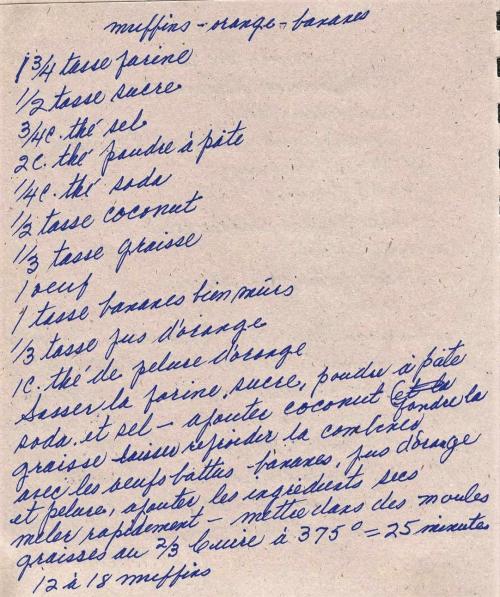 muffins - orange - bananes
1 3/4 tasse farine
1/2 tasse sucre
3/4 c. thé sel
2 c. thé poudre à pâte
1/4 c. thé soda
1/2 tasse coconut
1/3 tasse graisse
1 oeuf
1 tasse bananes bien mûrs
1/3 tasse jus d'orange
1 c. thé de pelure d'orange
Sasser la farine, sucre, poudre à pâte
soda, et sel - ajouter coconut fondre la
graisse laisser refroidir la combiner
avec les oeufs battus bananes, jus d'orange
et pelures, ajouter les ingrédients secs
mêler rapidement - mettre dans des moules
graissés au 2/3 Cuire à 375° = 25 minutes
12 à 18 muffins